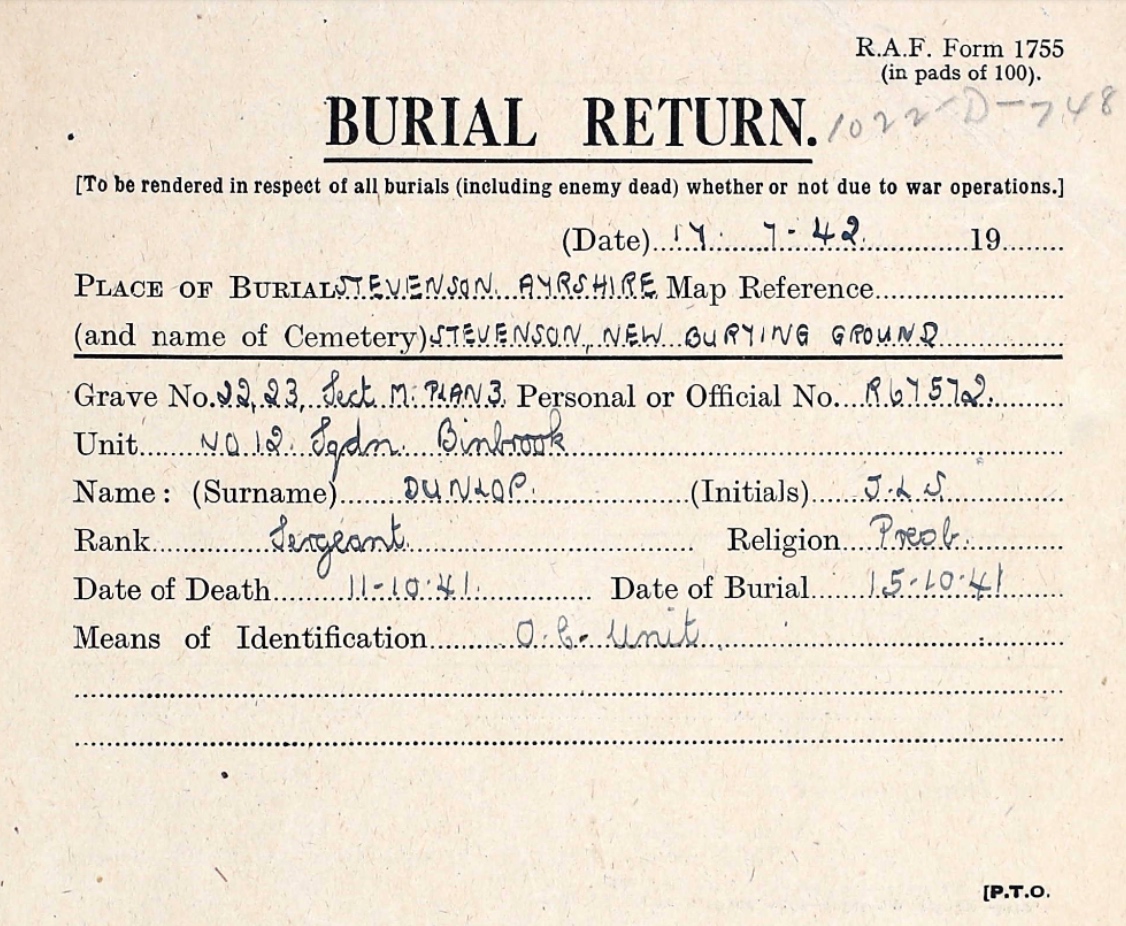 R.A.F. Form 1755
(in pads of 100).
BURIAL RETURN. 1022-D-748
[To be rendered in respect of all burials (including enemy dead) whether or not due to war operations.]
(Date) 17. 7-42. 19
PLACE OF BURIAL STEVENSON. AYRSHIRE Map Reference
(and name of Cemetery) STEVENSON, NEW BURYING GROUND
Grave No. 22, 23, Sect M. PLAN 3. Personal or Official No. R67572.
Unit NO 12. Sqdn. Binbrook
Name: (Surname) DUNLOP. (Initials) J.L.S.
Rank Sergeant. Religion Presb.
Date of Death 11-10.41. Date of Burial 15-10.41
Means of Identification O.C. Unit
[P.T.O.